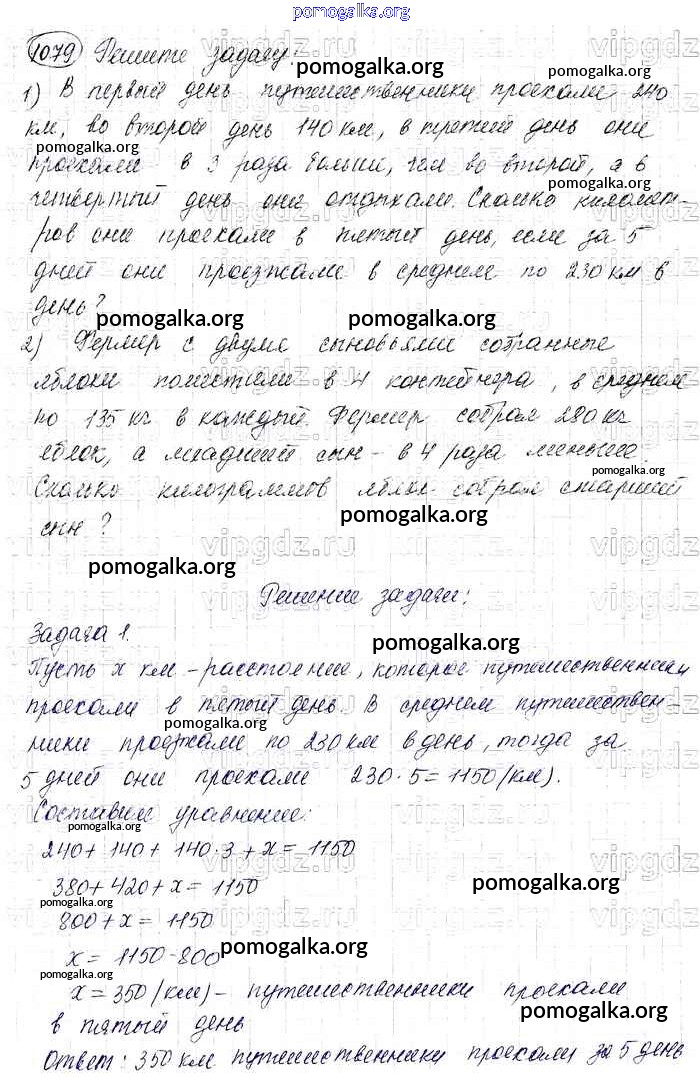 pomogalka.org
1079 Решите задачу:
pomogalka.org
1) В первый день путешественники проехали 240
км, во второй день 140 км, в третий день они
pomogalka.org
проехали в 3 раза больше, чем во второй, а в
pomogalka.org
четвертый день они отдыхали. Сколько километ-
ров они проехали в пятый день, если за 5
pomogalka.org
дней они проезжали в среднем по 230 км в
день?
pomogalka.org pomogalka.org
2) Фермер с двумя сыновьями собранные
яблоки поместили в 4 контейнера, в среднем
по 135 кг в каждый. Фермер собрал 280 кг
яблок, а младший сын - в 4 раза меньше.
pomogalka.org
Сколько килограммов яблок собрал старший
pomogalka.org
сын?
pomogalka.org
Решение задачи:
Задача 1.
pomogalka.org
Пусть x км - расстояние, которое путешественники
проехали в пятый день. В среднем путешествен-
pomogalka.org
ники проезжали по 230 км в день, тогда за
5 дней они проехали 230·5=1150 (км).
Составим уравнение:
pomogalka.org
240+140+140·3+x=1150
380+420+x=1150
pomogalka.org
800+x=1150
x=1150-800
pomogalka.org
pomogalka.org
x=350 (км) - путешественники проехали
pomogalka.org
в пятый день
Ответ: 350 км путешественники проехали за 5 день
pomogalka.org